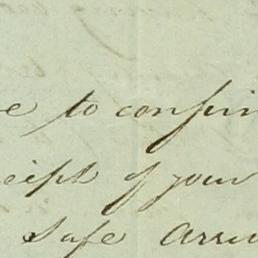 e to confir
ceipt of your
safe arri